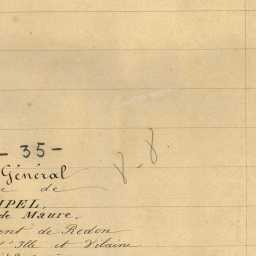 - 35 -
Général
de
PEL.
de Maure.
ent de Redon
d'Ille et Vilaine